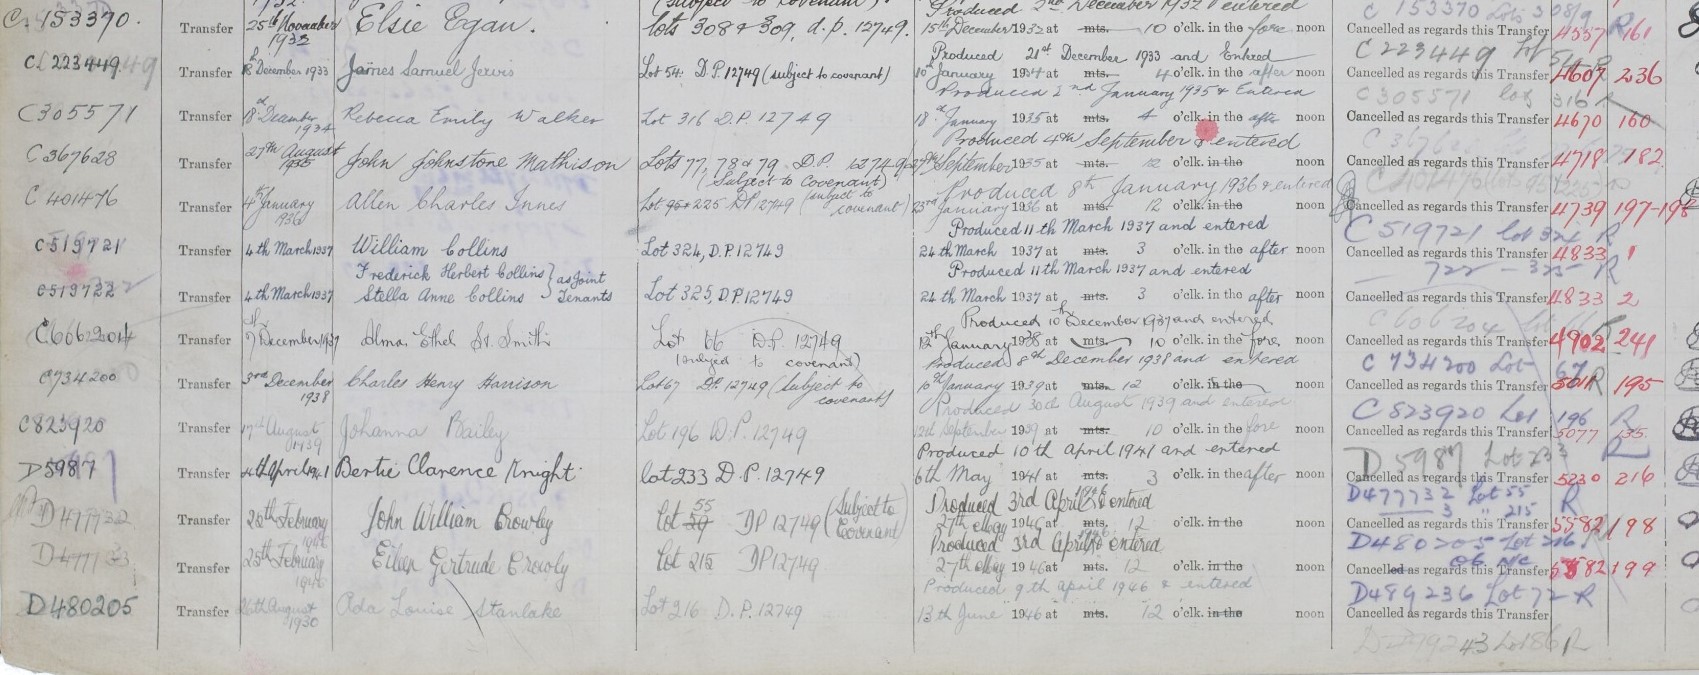 (subject to covenant). Produced 2nd December 1932 & entered C 153370 Lots 308/9 R
C 153370. Transfer 25th November 1932 Elsie Egan. lots 308 & 309, d.p. 12749. 15th December 1932 at mts. 10 o'clk. in the fore noon Cancelled as regards this Transfer 4557 161
Produced 21st December 1933 and Entered C 223449 Lot 54 R
C 223449 Transfer 18 December 1933 James Samuel Jervis Lot 54. D.P. 12749 (subject to covenant) 10 January 1934 at mts. 4 o'clk. in the after noon Cancelled as regards this Transfer 4607 236
Produced 2nd January 1935 & Entered C305571 lot 316 R
C305571 Transfer 18 December 1934 Rebecca Emily Walker Lot 316 D.P. 12749 18 January 1935 at mts. 4 o'clk. in the after noon Cancelled as regards this Transfer 4670 160
Produced 4th September & entered
C367628 Transfer 27th August 1935 John Johnstone Mathison Lots 77, 78 & 79. D.P. 12749 (Subject to Covenant) 27th September 1935 at mts. 12 o'clk. in the noon Cancelled as regards this Transfer 4718 182
Produced 8th January 1936 & entered
C 401476 Transfer 4th January 1936 Allen Charles Innes Lot 95 & 225 DP 12749 (subject to covenant) 23rd January 1936 at mts. 12 o'clk. in the noon Cancelled as regards this Transfer 4739 197-198
Produced 11th March 1937 and entered C519721 lot 324 R
C519721 Transfer 4th March 1937 William Collins Lot 324, D.P. 12749 24th March 1937 at mts. 3 o'clk. in the after noon Cancelled as regards this Transfer 4833 1
Frederick Herbert Collins } as Joint Produced 11th March 1937 and entered — 722 — 325 R
C519722 Transfer 4th March 1937 Stella Anne Collins Tenants Lot 325, D.P. 12749 24th March 1937 at mts. 3 o'clk. in the after noon Cancelled as regards this Transfer 4833 2
Produced 10th December 1937 and entered C606204
C606204 Transfer 7th December 1937 Alma Ethel St. Smith Lot 66 D.P. 12749 (subject to covenant) 12th January 1938 at mts. 10 o'clk. in the fore noon Cancelled as regards this Transfer 4902 241
Produced 8th December 1938 and entered C 734200 Lot 67 R
C734200 Transfer 3rd December 1938 Charles Henry Harrison Lot 67 DP. 12749 (subject to covenant) 10th January 1939 at mts. 12 o'clk. in the noon Cancelled as regards this Transfer 5011 195
Produced 30th August 1939 and entered C 823920 Lot 196 R
C823920 Transfer 17th August 1939 Johanna Bailey Lot 196 D.P. 12749 12th September 1939 at mts. 10 o'clk. in the fore noon Cancelled as regards this Transfer 5077 135
Produced 10th April 1941 and entered D5987 Lot 233 R
D5987 Transfer 4th April 1941 Bertie Clarence Knight. lot 233 D.P. 12749 6th May 1941 at mts. 3 o'clk. in the after noon Cancelled as regards this Transfer 5230 216
Produced 3rd April 1946 & entered D477732 Lot 55 R
— 3 " 215
D477732 Transfer 28th February 1946 John William Crowley lot 59 55 DP 12749 (Subject to Covenant) 27th May 1946 at mts. 12 o'clk. in the noon Cancelled as regards this Transfer 5582 198
Produced 3rd April 1946 & entered D480205 Lot 216
06 N/C
D477733 Transfer 25th February 1946 Eileen Gertrude Crowly lot 215 DP 12749 27th May 1946 at mts. 12 o'clk. in the noon Cancelled as regards this Transfer 5582 199
Produced 9th april 1946 & entered D489236 Lot 72 R
D480205 Transfer 26th August 1930 Ada Louise Stanlake Lot 216 D.P. 12749 13th June 1946 at mts. 12 o'clk. in the noon Cancelled as regards this Transfer
Lot 86 R